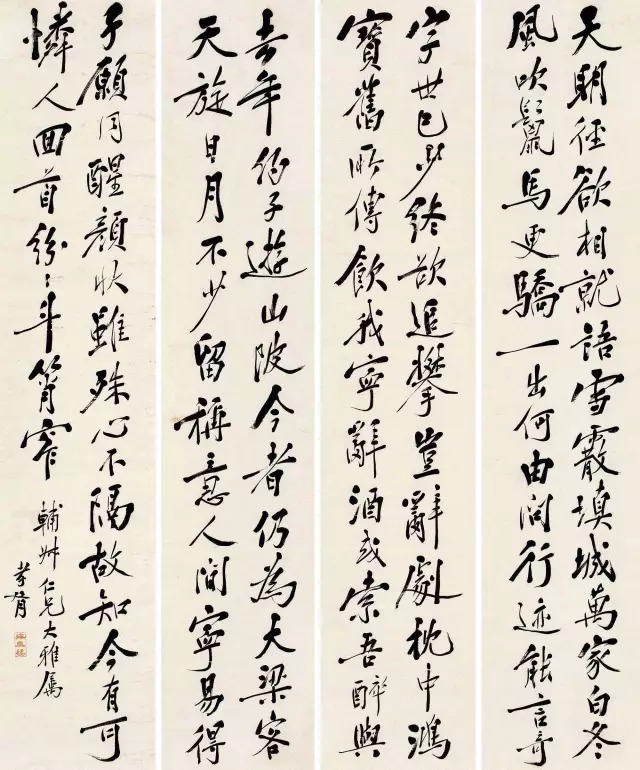 天明徑欲相就語雪霰填城萬家白冬
風吹鬣馬更驕一出何由問行迹能言奇
字世已少終欲追攀豈辭劇枕中鴻
寶舊所傳飲我寧辭酒或索吾醉與
去年約子遊山陂今者仍為大梁客
天旋日月不少留稱意人間寧易得
子願同醒顏狀雖殊心不隔故知今有可
憐人回首紛〻斗筲窄
輔艸仁兄大雅屬
孝胥